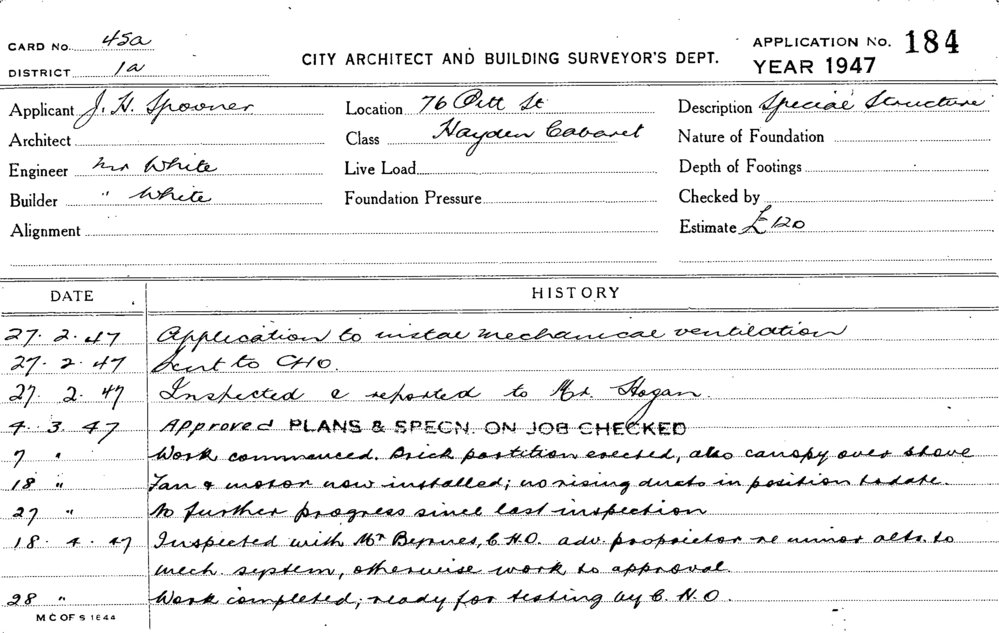 CARD No. 45a
DISTRICT 1a
CITY ARCHITECT AND BUILDING SURVEYOR'S DEPT.
APPLICATION No. 184
YEAR 1947
Applicant J. H. Spooner
Location 76 Pitt St
Description Special Structure
Architect
Class Hayden Cabaret
Nature of Foundation
Engineer Mr White
Live Load
Depth of Footings
Builder " White
Foundation Pressure
Checked by
Alignment
Estimate £120
DATE HISTORY
27. 2. 47 Application to instal mechanical ventilation
27. 2. 47 Sent to CHO.
27. 2. 47 Inspected & reported to Mr. Hogan.
4. 3. 47 Approved PLANS & SPECN. ON JOB CHECKED
7 " Work commenced. Brick partition erected, also canopy over stove
18 " Fan & motor now installed; no rising ducts in position to date.
27 " No further progress since last inspection
18. 4. 47 Inspected with Mr Byrnes, C.H.O. adv. proprietor re minor alts. to
mech. system, otherwise work to approval.
28 " Work completed; ready for testing by C.H.O.
M C OF S 1644